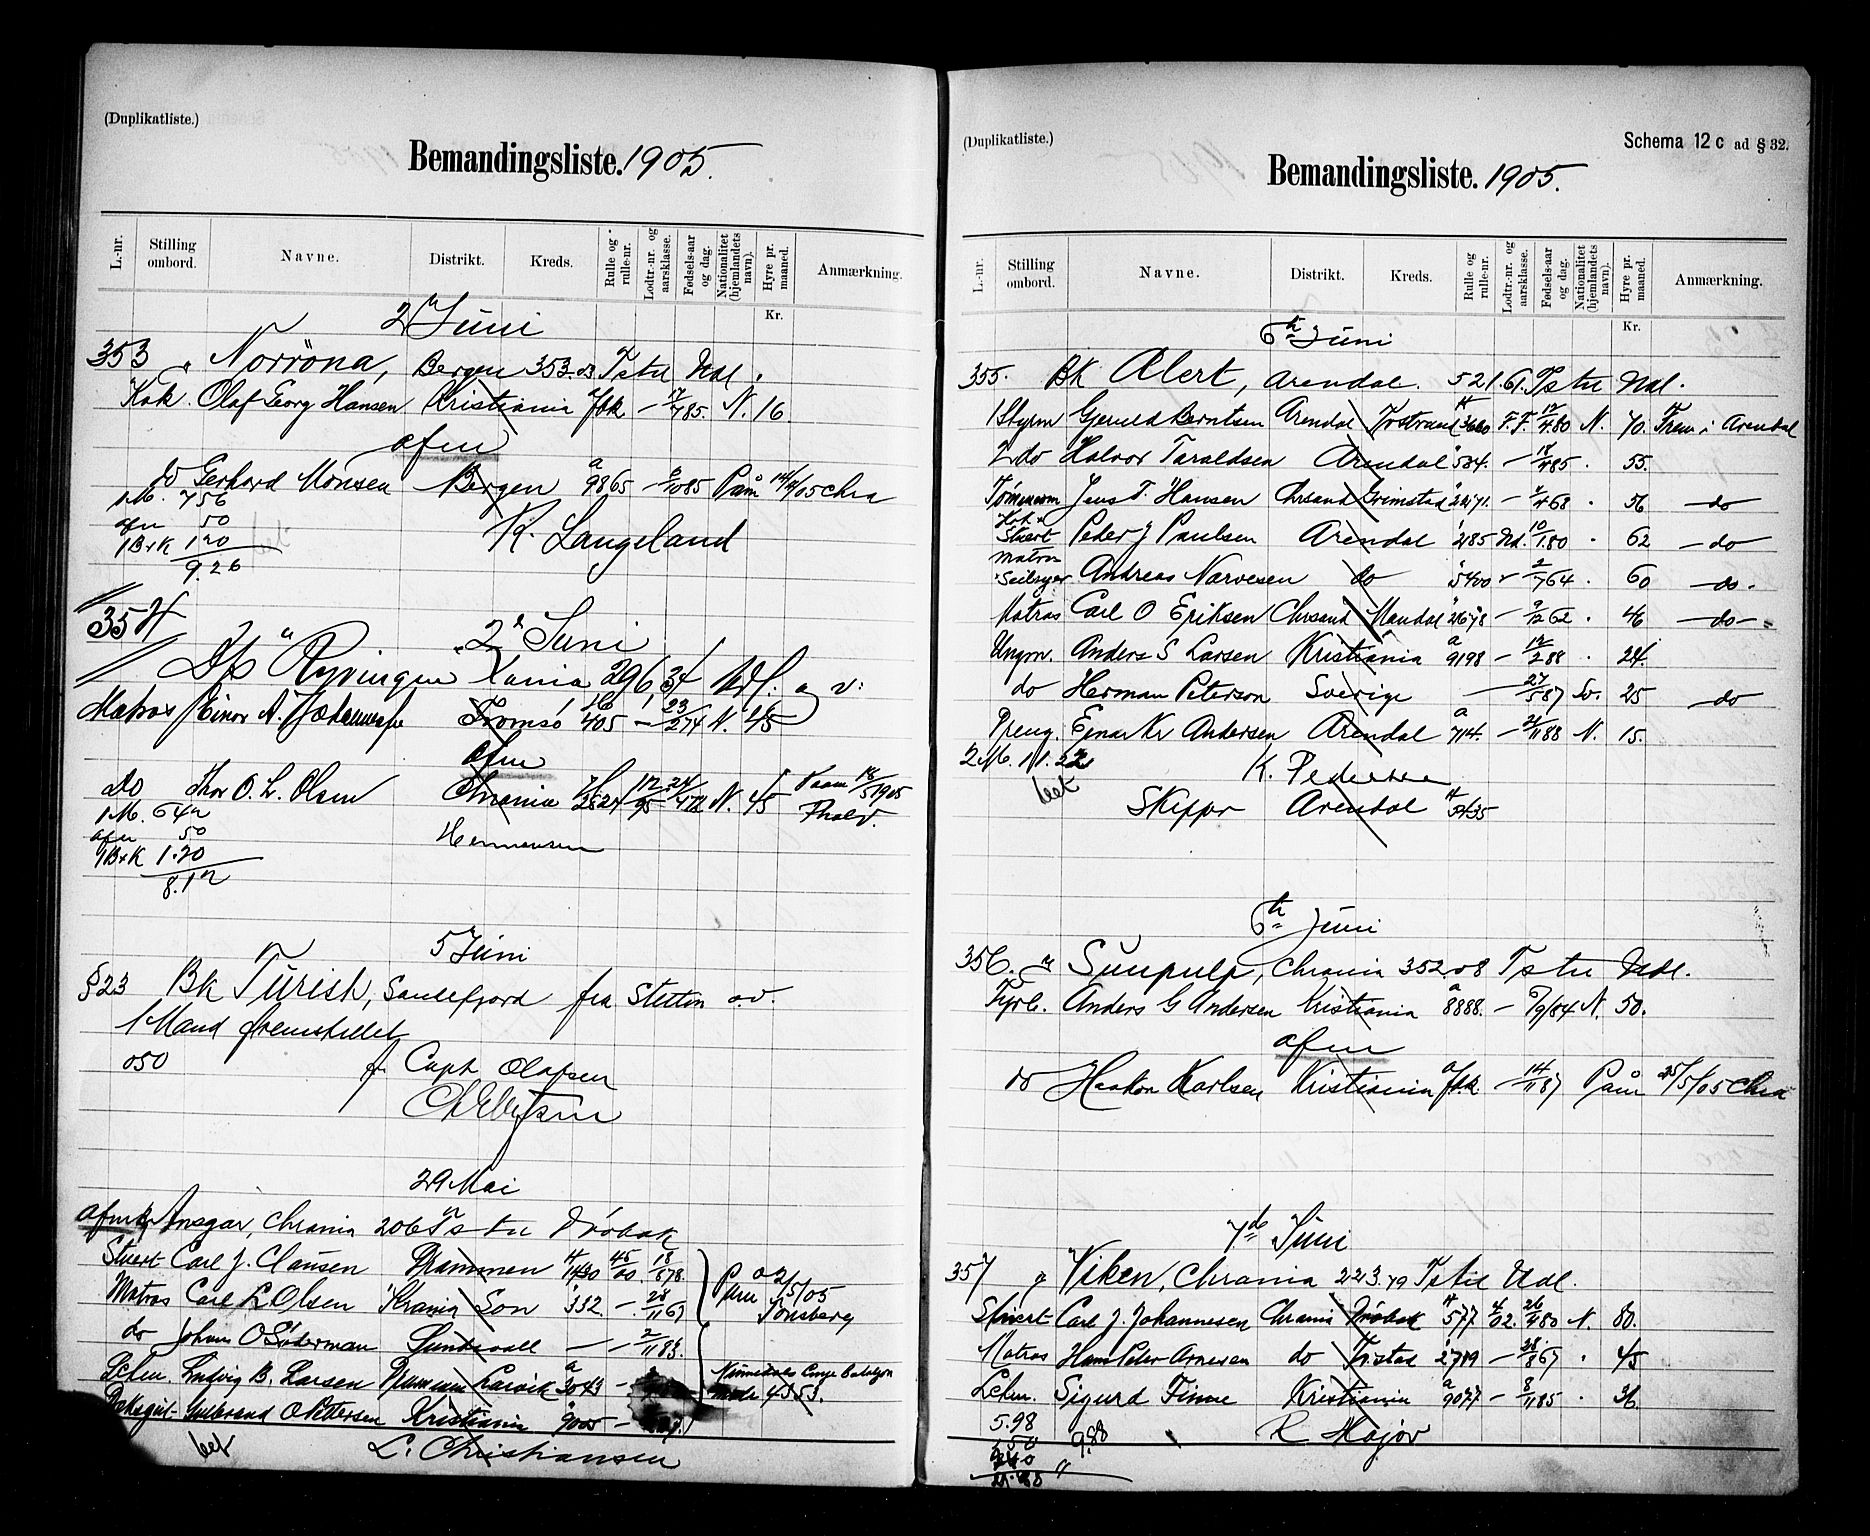 (Duplikatliste.)
Bemandingsliste. 1905.
L.-nr. Stilling ombord. Navne. Distrikt. Kreds. Rulle og rulle-nr. Lodtr.-nr. og aarsklasse. Fødsels-aar og dag. Nationalitet (hjemlandets navn). Hyre pr. maaned. Anmærkning.
Kr.
2 Juni
353 Norröna, Bergen 353.03 Tstu Udl.
Kok Olaf Georg Hansen Kristiania fbk — 7/85. N. 16
afm
do Gerhard Monsen Bergen a 9865 — 85 Påm 14/4/05 Chra
1M. 756
afm 50
1B+K 120
9.26
K. Langeland
354
2 Juni
Ds Ryvingen Xania 296,34 Udl. a v:
Matros Einar A. Johannesse Tromsö 405 — 23/2 74 N. 45
afm
Do Thor O. L. Olsen Chrania 2524 12/95 24/4 N. 45 Paam 18/5 1905
1M. 642
afm 50
1B+K 1.20
8.12
Hermansen
5 Juni
§23 Bk Turist, Sandefjord fra Stettin o.v.
1 Mand fremstillet
050
f. Capt Olafsen
29 Mai
afmk Ansgar, Chrania 206 Tstu Dröbak
Stuert Carl J. Clausen Drammen 1430 45/00 18/5 78.
Matros Carl L Olsen Krania Son 332. — 28/11 67
Påm 2/5/05 Tönsberg
do Johan O Söderman Sundsvall — — 2/11 83.
Letm. Ludvig B. Larsen Drammen Larvik a 3043 —
Dæksgut Gulbrand O Pettersen Kristiania 9005 —
L. Christiansen
(Duplikatliste.)
Schema 12 c ad § 32.
Bemandingsliste. 1905.
L.-nr. Stilling ombord. Navne. Distrikt. Kreds. Rulle og rulle-nr. Lodtr.-nr. og aarsklasse. Fødsels-aar og dag. Nationalitet (hjemlandets navn). Hyre pr. maaned. Anmærkning.
Kr.
6te Juni
355. Bk Alert, Arendal. 521.61. Tstu Udl.
1 Styrm Gjeruld Berntsen Arendal Trostrand 3660 F.F. 12/4 80 N. 70. Frem i Arendal
2 do Halvor Taraldsen Arendal 534. — 18/4 85 . 55.
Tömmerm Jens T. Hansen Chrsand Grimstad 2271. — 4 68 . 56 — do
Kok + Stuert Peder J Paulsen Arendal 2185 Ud. 10/1 80 . 62 — do
Matros Seilsyer Andreas Narvesen do 5400 — 2/7 64 . 60 — do.
Matros Carl O Eriksen Chrsand Mandal 2678 — 9/12 62 . 46 — do —
Ungm. Anders S Larsen Kristiania a 9198 — 12/2 88 . 24.
do Herman Peterson Sverige — 27/5 87 Sv. 25 — do
Preng. Ejnar Kr Andersen Arendal a 714. — 21/11 88 N. 15.
2M. 11.22
K. Pedersen
Skippr Arendal 5435
6te Juni
356. Sunpulp, Chrania 352.08 Tstu Udl.
Fyrb. Anders G Andersen Kristiania a 8888. — 9/84 N. 50.
afm
do Haakon Karlsen Kristiania a fbk. — 14/11 87 Påm 25/5/05 Chra
7de Juni
357 Viken, Chrania 223.79 Tstu Udl.
Stuert Carl J. Johannesen Chrania Dröbak 577 4/02. 26/4 80 N. 80.
Matros Hans Peter Arnesen do Fr.stad 2789 — 28/8 67 . 45
Letm. Sigurd Finne Kristiania a 9077 — 8/11 85 . 36.
5.98
9.88
R Major